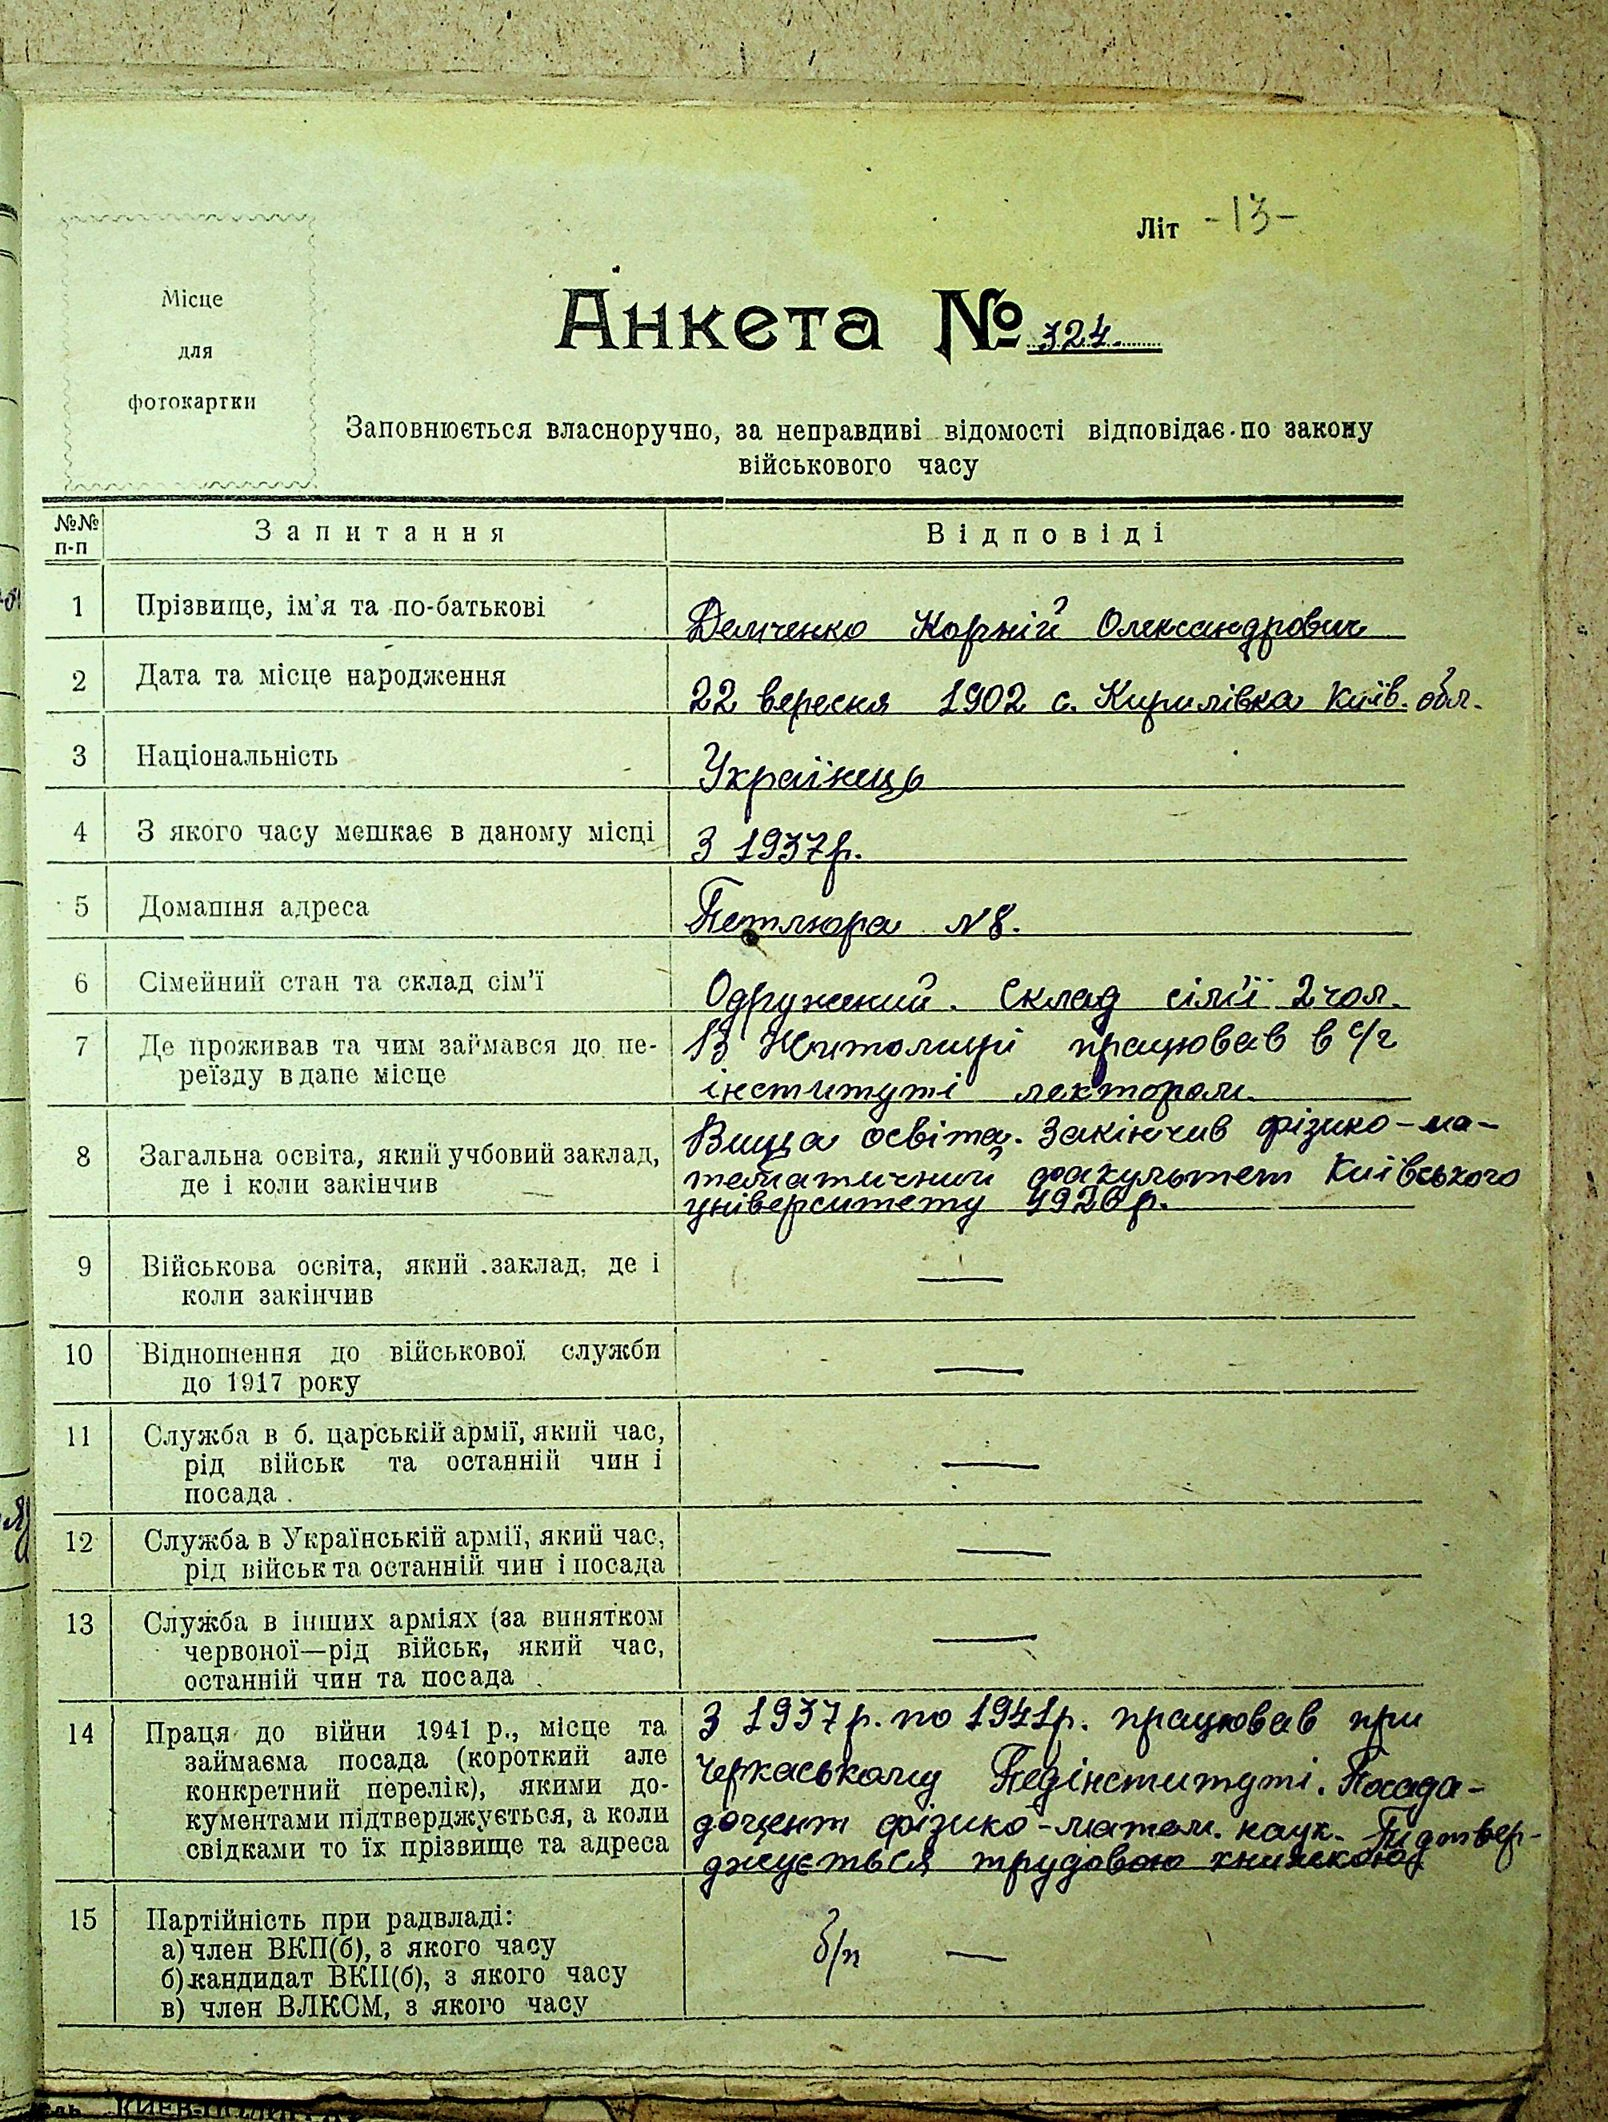 Літ -13-
Місце
для
фотокартки
Анкета № 324
Заповнюється власноручно, за неправдиві відомості відповідає по закону
військового часу
№№ п-п Запитання Відповіді
1 Прізвище, ім'я та по-батькові Демченко Корній Олександрович
2 Дата та місце народження 22 вересня 1902 с. Кирилівка Київ. обл.
3 Національність Українець
4 З якого часу мешкає в даному місці З 1937р.
5 Домашня адреса Петлюра №8.
6 Сімейний стан та склад сім'ї Одружений. Склад сім'ї 2 чол.
7 Де проживав та чим займався до пе- В Житомирі працював в с/г
реїзду в дане місце інституті лектором.
8 Загальна освіта, який учбовий заклад, Вища освіта. Закінчив фізико-ма-
де і коли закінчив тематичний факультет Київського
університету 1926р.
9 Військова освіта, який заклад, де і —
коли закінчив
10 Відношення до військової служби —
до 1917 року
11 Служба в б. царській армії, який час, —
рід військ та останній чин і
посада
12 Служба в Українській армії, який час, —
рід військ та останній чин і посада
13 Служба в інших арміях (за винятком —
червоної—рід військ, який час,
останній чин та посада
14 Праця до війни 1941 р., місце та З 1937р. по 1941р. працював при
займаєма посада (короткий але Черкаському Педінституті. Посада-
конкретний перелік), якими до- доцент фізико-матем. наук. Підтвер-
кументами підтверджується, а коли джується трудовою книжкою
свідками то їх прізвище та адреса
15 Партійність при радвладі: б/п —
а) член ВКП(б), з якого часу
б) кандидат ВКП(б), з якого часу
в) член ВЛКСМ, з якого часу